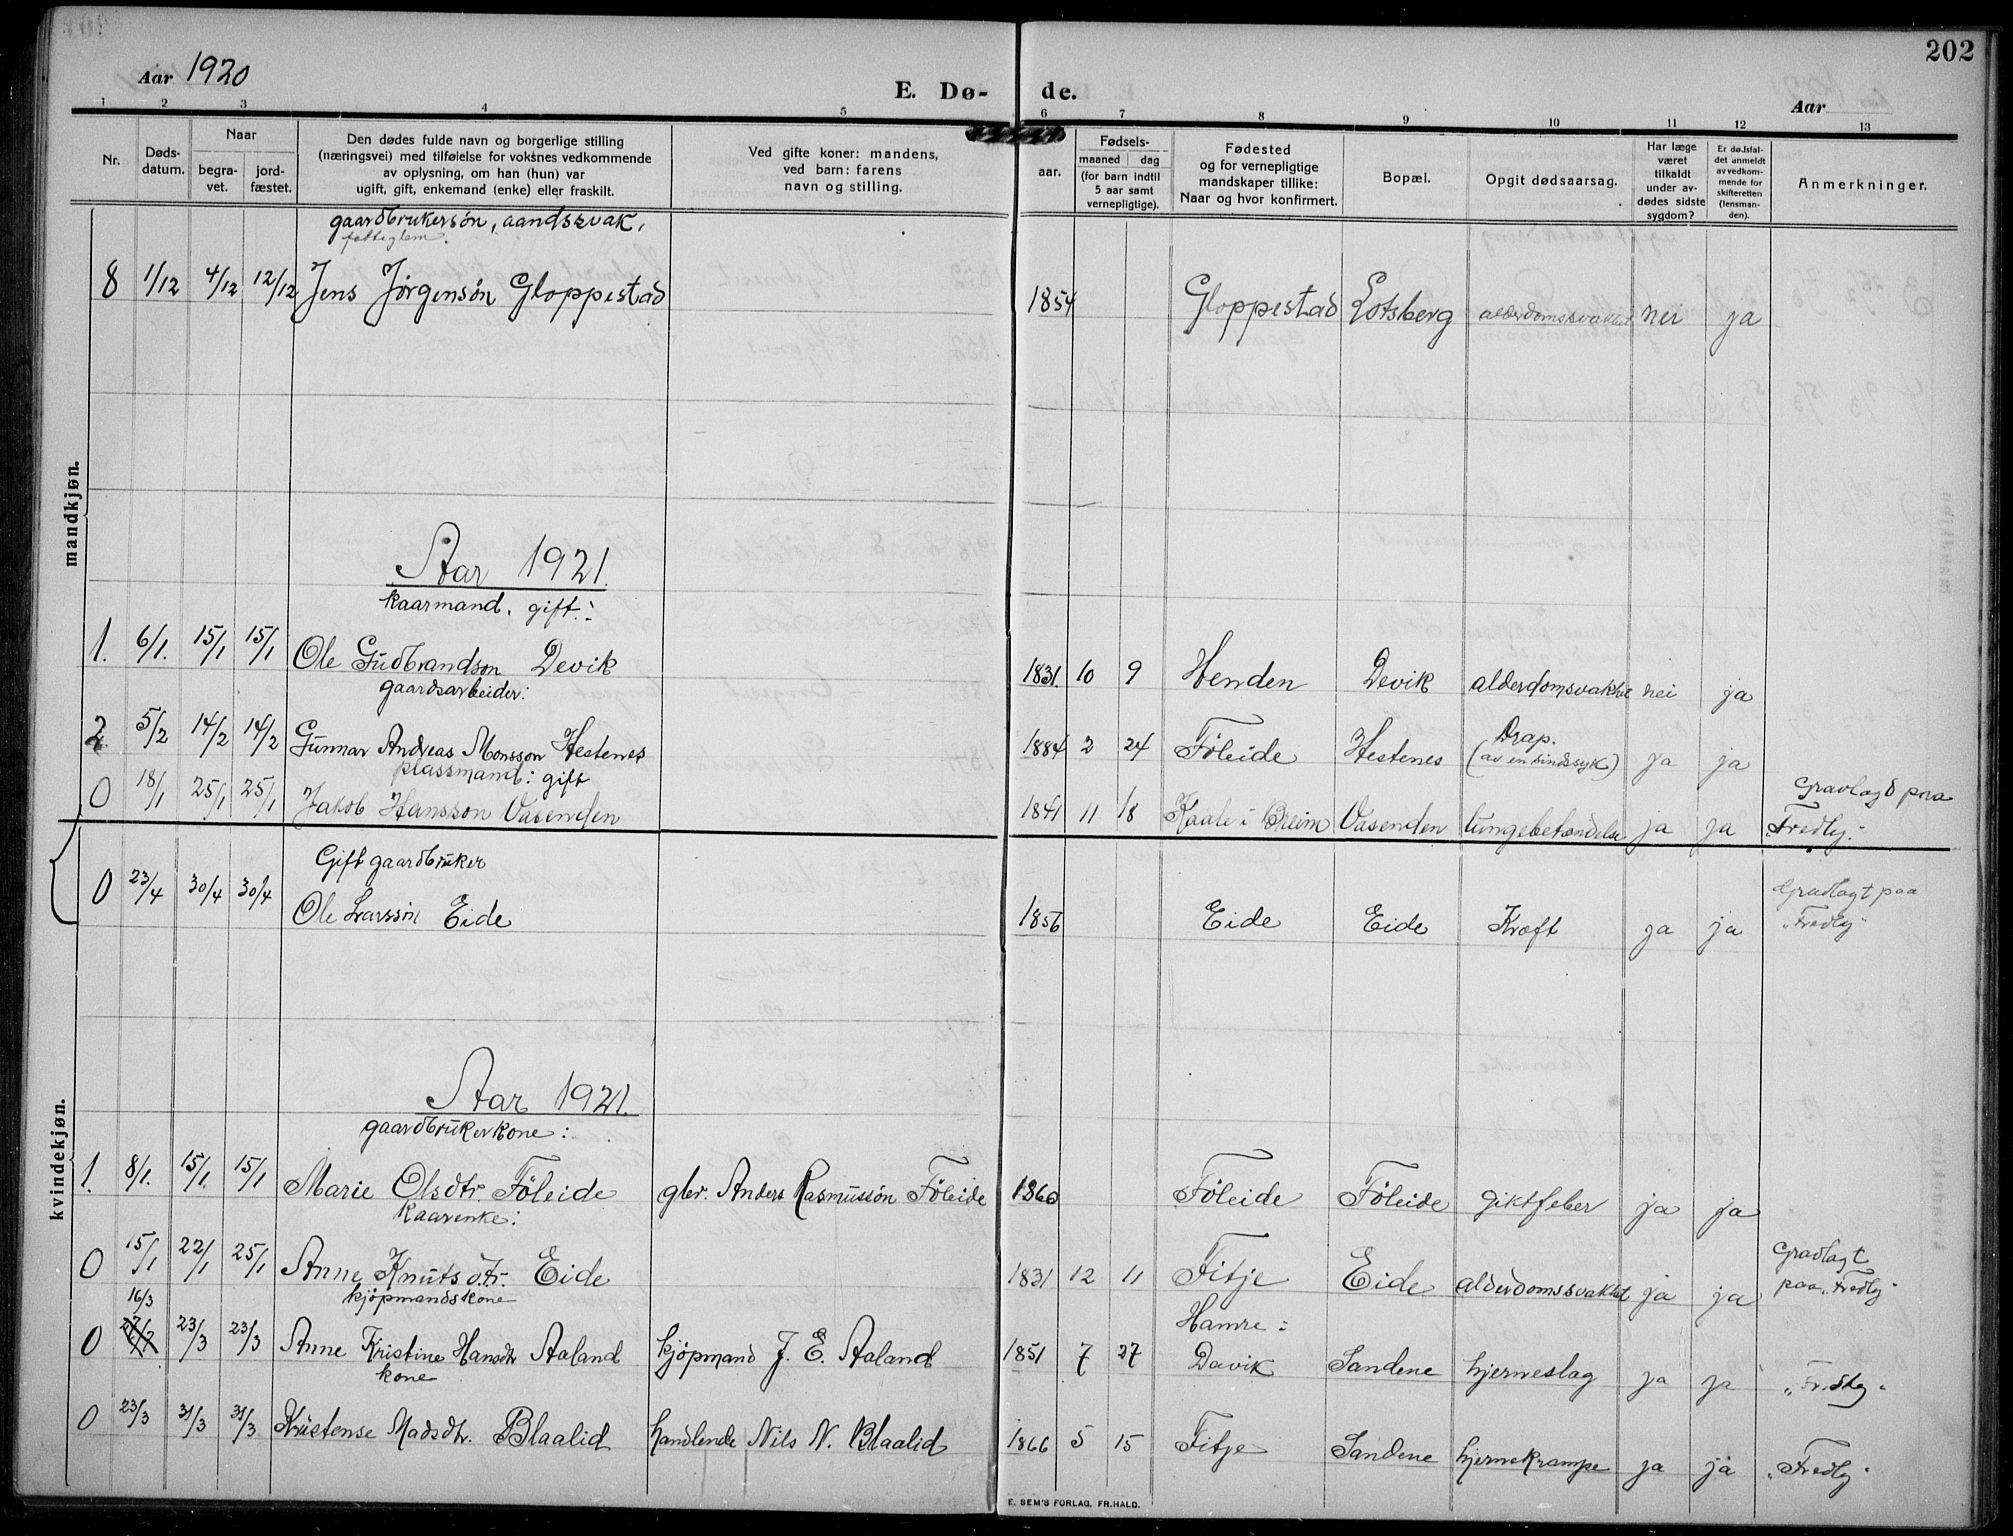 202
Aar 1920
E. Dø- de.
Aar
1 2 3 4 5 6 7 8 9 10 11 12 13
Nr.
Døds-
datum.
Naar
begra-
vet.
jord-
fæstet.
Den dødes fulde navn og borgerlige stilling
(næringsvei) med tilføielse for voksnes vedkommende
av oplysning, om han (hun) var
ugift, gift, enkemand (enke) eller fraskilt.
Ved gifte koner: mandens,
ved barn: farens
navn og stilling.
aar.
Fødsels-
maaned dag
(for barn indtil
5 aar samt
vernepligtige).
Fødested
og for vernepligtige
mandskaper tillike:
Naar og hvor konfirmert.
Bopæl.
Opgit dødsaarsag.
Har læge
været
tilkaldt
under av-
dødes sidste
sygdom?
Er dødsfal-
det anmeldt
av vedkom-
mende for
skifteretten
(lensman-
den).
Anmerkninger.
mandkjøn.
gaardbrukersøn, aandssvak,
fattiglem.
8 1/12 4/12 12/12 Jens Jørgensøn Gloppestad 1854 Gloppestad Lotsberg alderdomssvakhet nei ja
Aar 1921.
kaarmand, gift:
1. 6/1. 15/1 15/1 Ole Gudbrandson Devik 1831. 10 9 Henden Devik alderdomsvakhet nei ja
gaardsarbeider:
2. 5/2 14/2 14/2 Gunnar Andreas Monsson Hestenes 1884 2 24 Föleide Hestenes Drap. (av en sindssyk) ja ja
plassmand: gift
0 18/1 25/1 25/1 Jakob Hansson Vasenden 1841 11 18 Kaale i Breim Vasenden lungebetændelse ja ja Gravlagd paa
"Fredly."
Gift gaardbruker
0 23/4 30/4 30/4 Ole Larssøn Eide 1856 Eide Eide Kræft ja ja Gravlagt paa
"Fredly"
kvindekjøn.
Aar 1921.
gaardbrukerkone:
1. 8/1. 15/1. 15/1 Marie Olsdtr. Föleide gbr. Anders Rasmussön Föleide 1860 Föleide Föleide giktfeber ja ja
kaarenke:
0 15/1 22/1 25/1 Anne Knutsdtr. Eide 1831 12 11 Fitje Eide alderdomssvakhet ja ja Gravlagt
paa "Fredly"
kjøpmandskone
16/3
0 23/3 23/3 Anne Kristine Hansdtr Aaland kjøpmand J. E. Aaland 1851 7 27 Hamre: Davik Sandene hjerneslag ja ja "Fredly"
kone
0 23/3 31/3 31/3 Kristense Madsdtr. Blaalid handlende Nils N. Blaalid 1866 5 15 Fitje Sandene hjernekrampe ja ja "Fredly"
E. SEM'S FORLAG, FR.HALD.